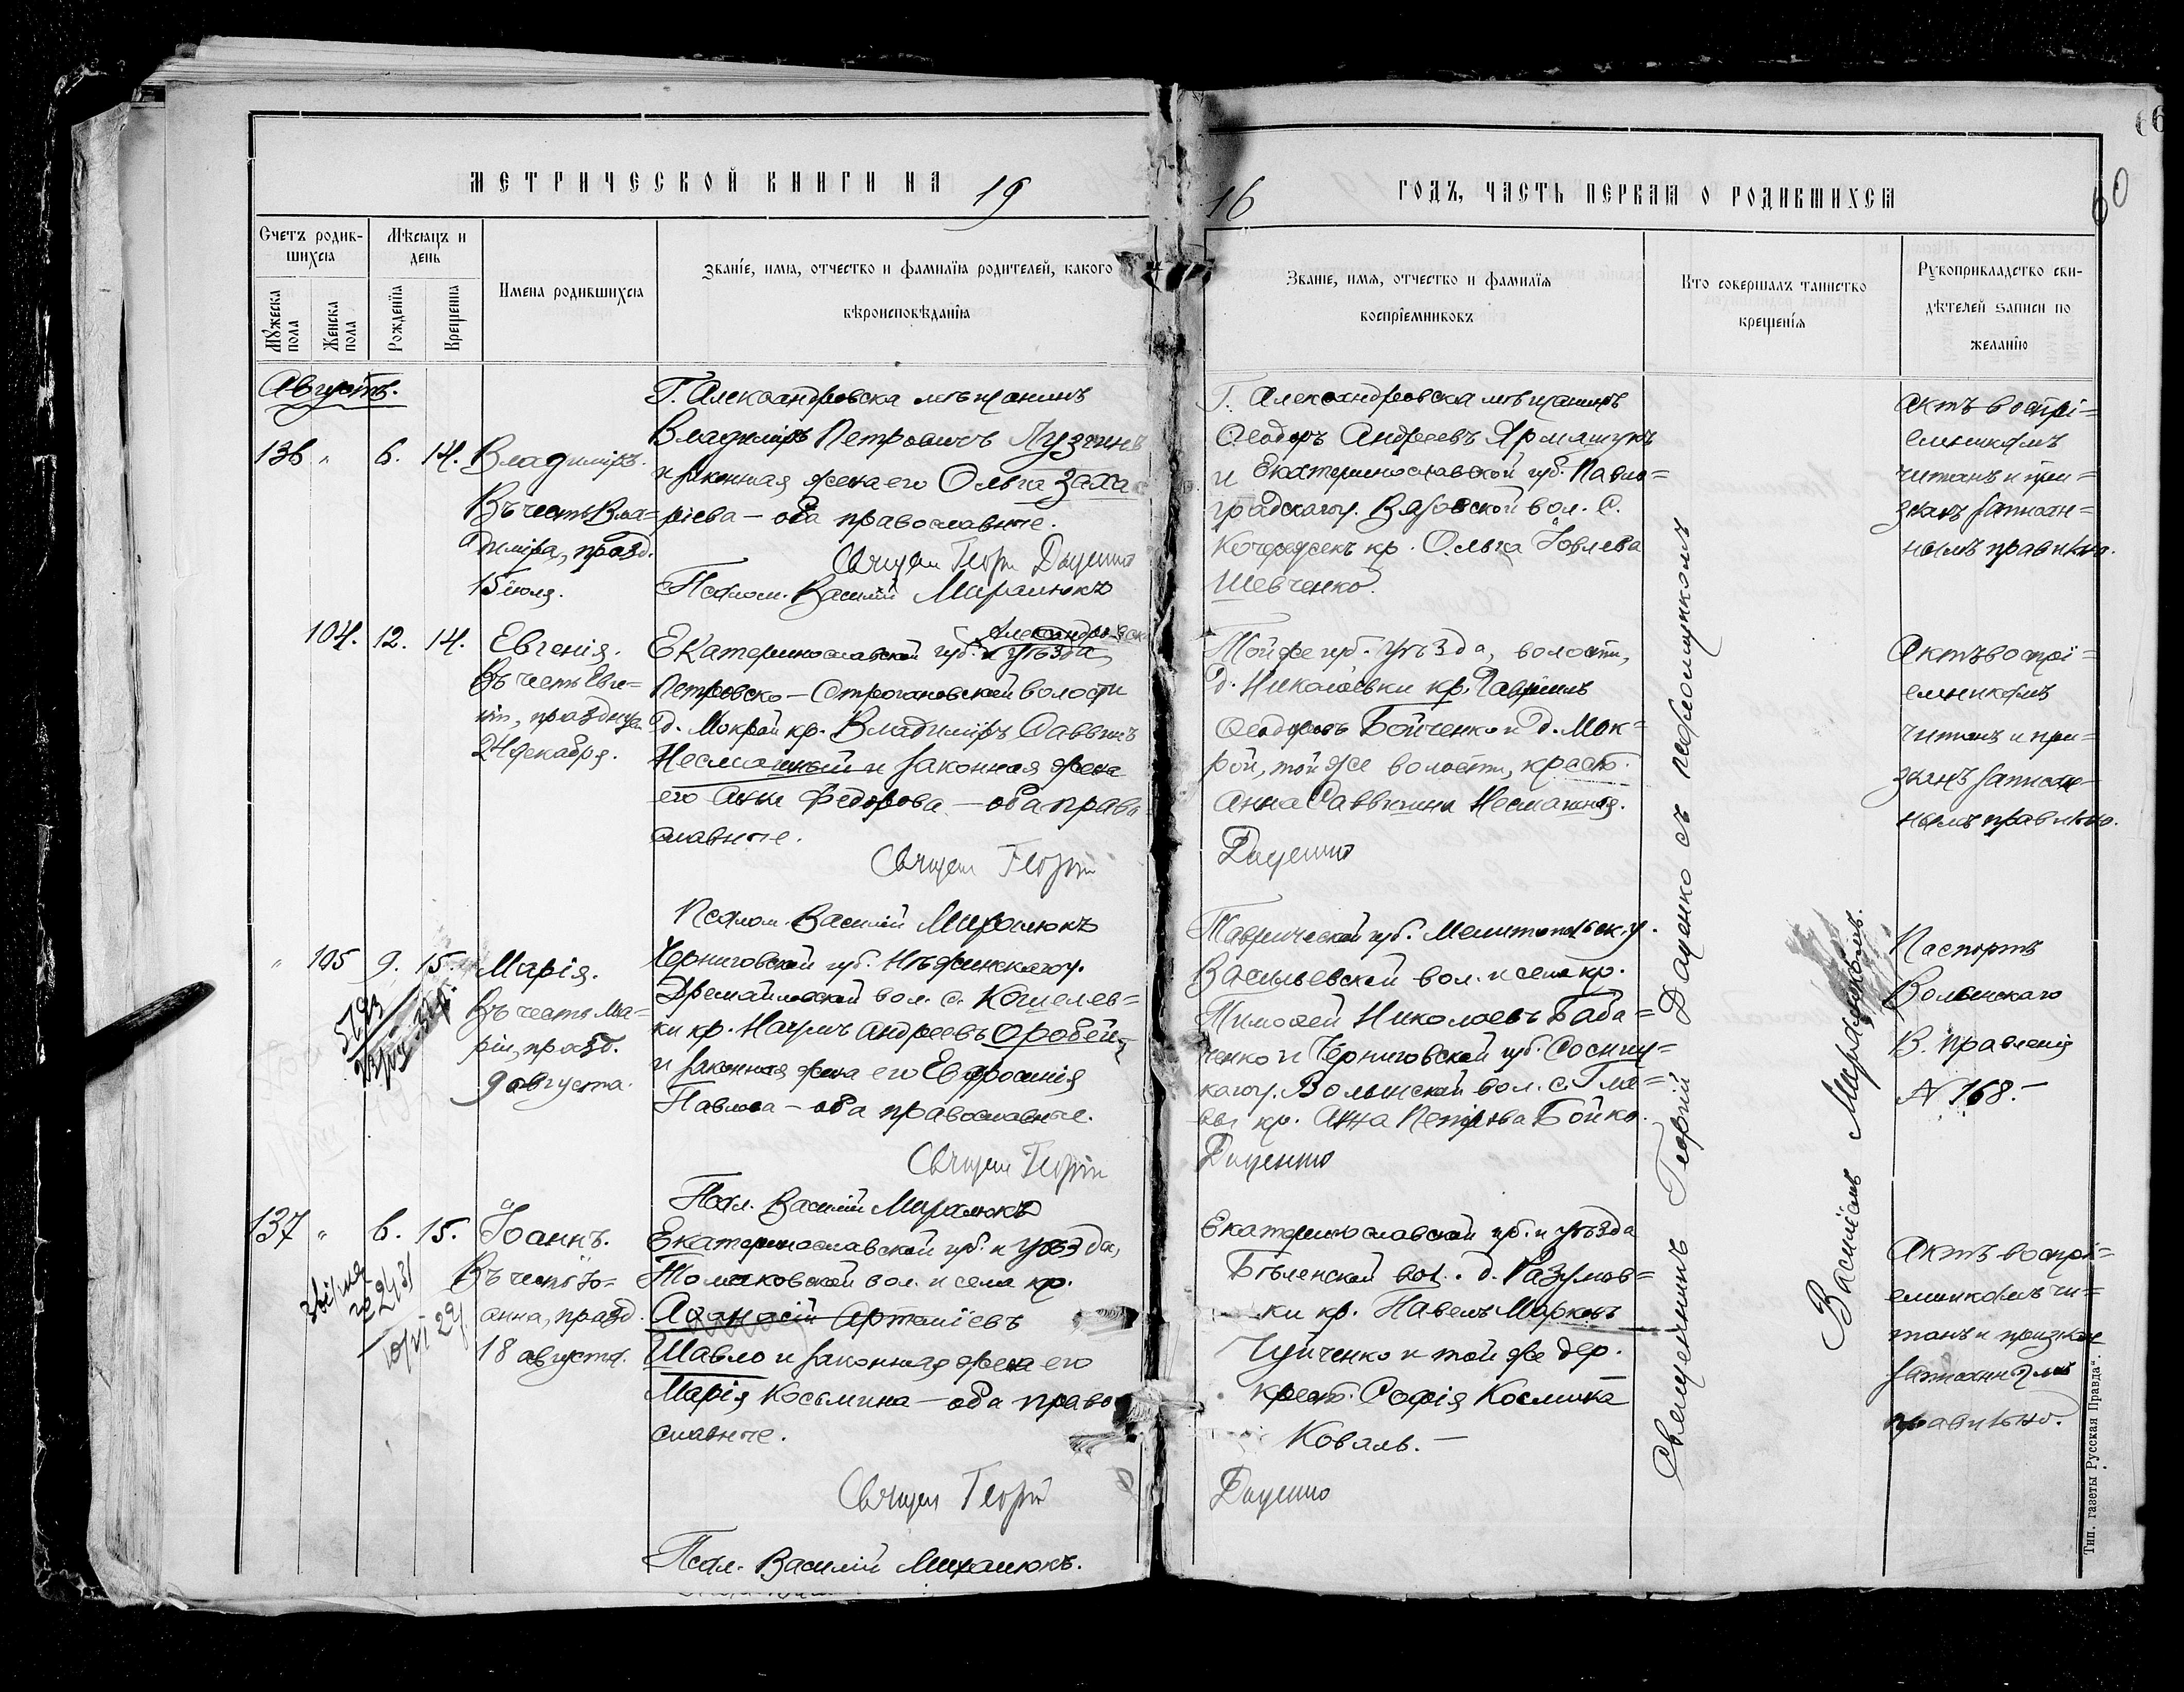 МЕТРИЧЕСКОЙ КНИГИ НА 19
16 ГОДЪ, ЧАСТЬ ПЕРВАЯ О РОДИВШИХСЯ
60
Счетъ родив-
шихся
Мѣсяцъ и
день
Мужеска
пола
Женска
пола
Рожденія
Крещенія
Имена родившихся
Званіе, имя, отчество и фамилія родителей, какого
вѣроисповѣданія
Званіе, имя, отчество и фамилія
воспріемниковъ
Кто совершалъ таинство
крещенія
Рукоприкладство сви-
дѣтелей записи по
желанію
Августъ.
136 " 6. 14. Владиміръ.
Въ честь Вла-
диміра, празд.
15 іюля.
Г. Александровска мѣщанинъ
Владиміръ Петровичъ Лузгинъ
и законная жена его Ольга Заха
ріева - оба православные.
Священ Георгій Даценко
Псалом. Василій Михалюкъ
Г. Александровска мѣщанинъ
Ѳеодоръ Андреевъ Ярмащукъ
и Екатеринославской губ. Павло=
градскаго у. Вязовской вол. с.
Кочережекъ кр. Ольга Іовлева
Шевченко.
Актъ воспрі=
емникамъ
читанъ и при=
знанъ записан=
нымъ правильно.
104. 12. 14. Евгенія.
Въ честь Евге=
ніи, празднуем
24 декабря.
Александровска
Екатеринославской губ. и уѣзда,
Петровско-Строгановской волости
д. Мокрой кр. Владиміръ Саввинъ
Несмашный и законная жена
его Анна Федорова - оба право
славные.
Священ Георгій
Псалом. Василій Михалюкъ
Той же губ. уѣзда, волости,
д. Николаевки кр. Гавріилъ
Ѳеодоровъ Бойченко и д. Мок=
рой, той же волости, крест.
Анна Саввична Несмашная.
Даценко
Актъ воспрі=
емникамъ
читанъ и при=
знанъ записан-
нымъ правильно.
" 105 9. 15. Марія.
Въ честь Ма=
ріи, празд.
9 августа.
Черниговской губ. Нѣжинскаго у.
Дремайловской вол. с. Кошелев=
ки кр. Наумъ Андреевъ Оробей
и законная жена его Евфросинія
Павлова - оба православные.
Священ Георгій
Псал. Василій Михалюкъ
Таврической губ. Мелитопольск. у.
Васильевской вол. и села кр.
Тимоѳей Николаевъ Баба=
ченко и Черниговской губ. Сосниц=
каго у. Волынской вол. с.
кр. Анна Петрова Бойко.
Даценко
Паспортъ
Волынскаго
В. правленія
№ 168.-
137 " 6. 15. Іоаннъ.
Въ честь Іо=
анна, празд.
18 августа.
Екатеринославской губ. и уѣзда,
Томаковской вол. и села кр.
Аѳанасій Артеміевъ
Шавло и законная жена его
Марія Косьмина - оба право
славные.
Священ Георгій
Псал. Василій Михалюкъ.
Екатеринославской губ. и уѣзда
Бѣленской вол. д. Разумов=
ки кр. Павелъ Марковъ
Чуйченко и той же дер.
крест. Софія Космина
Коваль.-
Даценко
Актъ воспрі=
емникамъ чи=
танъ и признан
записаннымъ
правильно.
Священникъ Георгій Даценко съ псаломщикомъ
Василіемъ Михалюкомъ.
Тип. газеты Русская Правда".